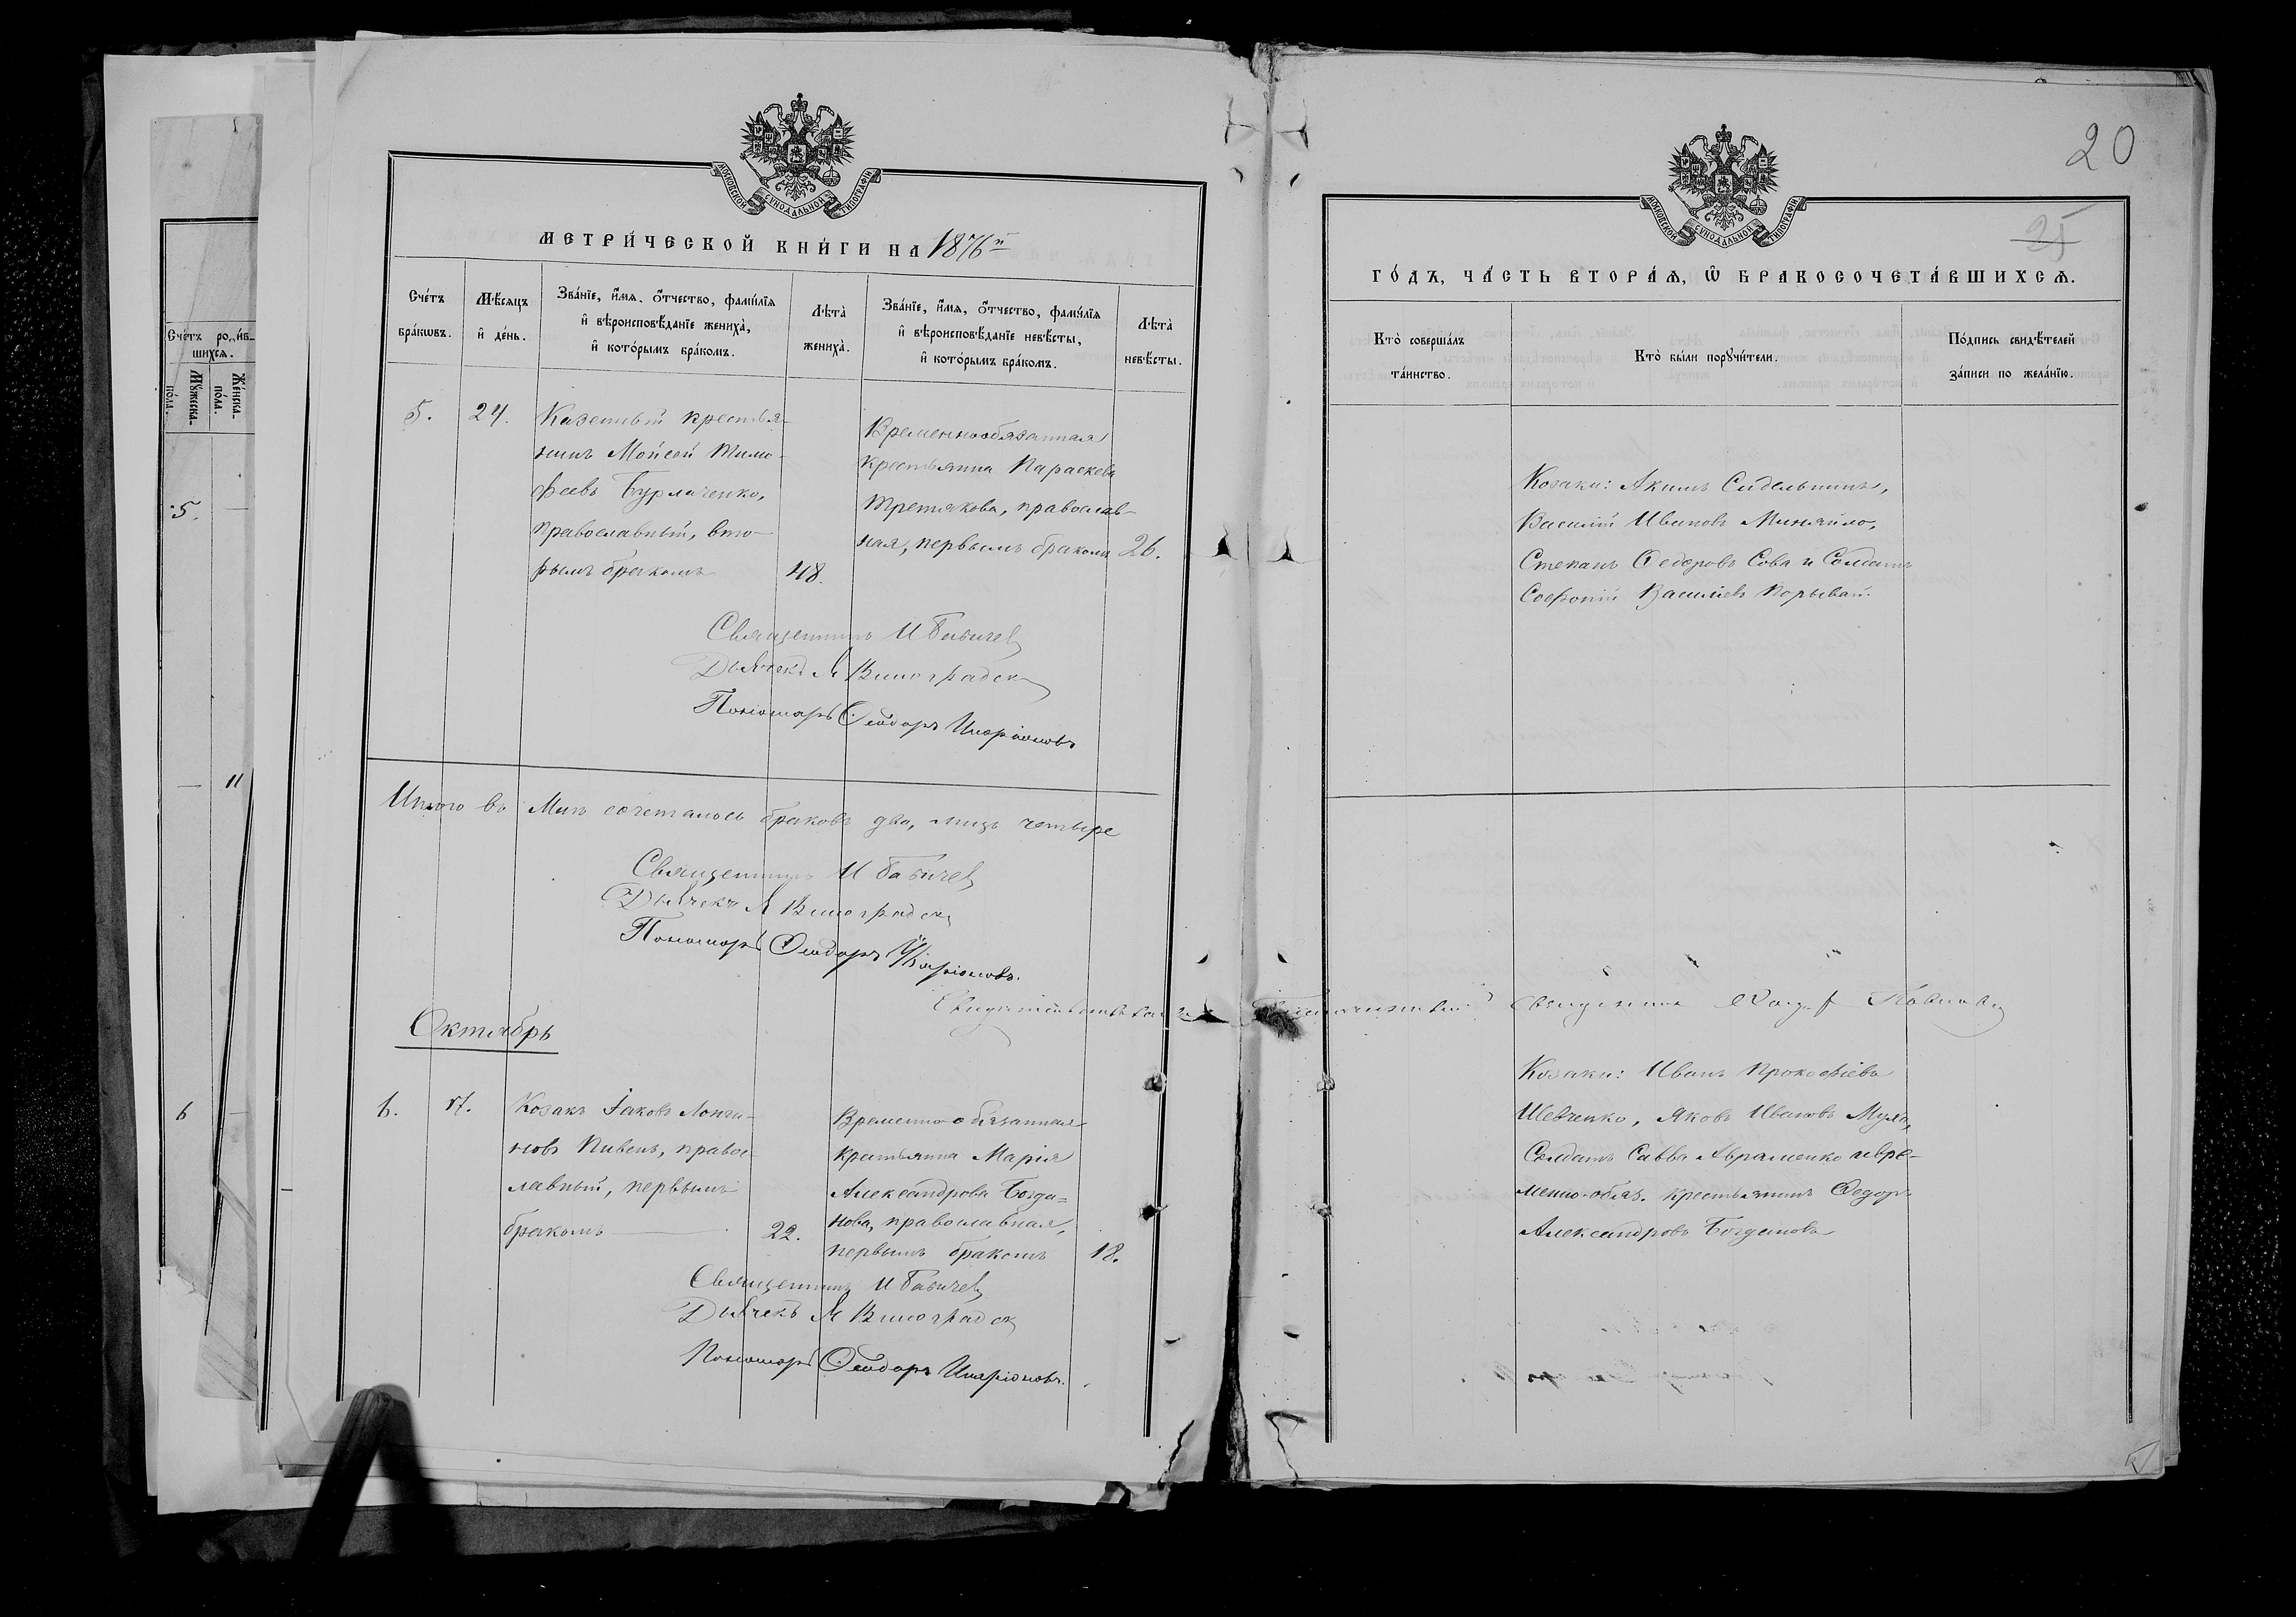 20
25
МОСКОВСКОЙ СУНОДАЛЬНОЙ ТИПОГРАФІИ
МЕТРИ́ЧЕСКОЙ КНИ́ГИ НА 1876й
Сче́тъ бра́кѡвъ.
Мѣ́сяцъ и҆ де́нь.
Зва́нїе, и҆́мя, ѻ҆́тчество, фами́лїя
и҆ вѣроисповѣ́данїе жениха̀,
и҆ кото́рымъ бра́комъ.
Лѣта̀ жениха̀.
Зва́нїе, и҆́мя, ѻ҆́тчество, фами́лїя
и҆ вѣроисповѣ́данїе невѣ́сты,
и҆ кото́рымъ бра́комъ.
Лѣта̀ невѣ́сты.
5.
24.
Казенный крестья-
нинъ Мойсей Тимо-
феевъ Бурлаченко,
православный, вто-
рымъ бракомъ
48.
Временнообязанная
крестьянка Параскева
Третякова, православ-
ная, первымъ бракомъ
26.
Священникъ И Бабичев
Дьячекъ Я Виноградск
Пономарь Феодоръ Иларіоновъ
Итого въ Маѣ сочеталось браковъ два, лицъ четыре
Священникъ И Бабичев
Дьячекъ Я Виноградск
Пономарь Феодоръ Иларіоновъ.
Октябрь
6.
17.
Козакъ Іаковъ Лонги-
новъ Пивень, правос-
лавный, первымъ
бракомъ
22.
Временно-обязанная
крестьянка Марія
Александрова Богда=
нова, православная,
первымъ бракомъ
18.
Священникъ И Бабичев
Дьячекъ Я Виноградск
Пономарь Феодоръ Иларіоновъ.
МОСКОВСКОЙ СУНОДАЛЬНОЙ ТИПОГРАФІИ
ГО́ДЪ, ЧА́СТЬ ВТОРА́Я, Ѡ҆ БРАКОСОЧЕТА́ВШИХСЯ.
Кто̀ соверша́лъ та́инство.
Кто̀ бы́ли порꙋчи́тели.
По́дпись свидѣ́телей
за́писи по жела́нїю.
Козаки: Акимъ Сидельникъ,
Василій Ивановъ Миняйло,
Степанъ Федоровъ Сова и Солдатъ
Софоній Василіевъ Порывай.
священникъ
Козаки: Иванъ Прокофіевъ
Шевченко, Яковъ Ивановъ
Солдатъ Савва Авраменко и вре-
менно-обяз. крестьянинъ Федоръ
Александровъ Богдановъ
Сче́тъ роди́в-
шихся.
Мꙋ́жеска- по́ла.
Же́нска- по́ла.
5.
11
6